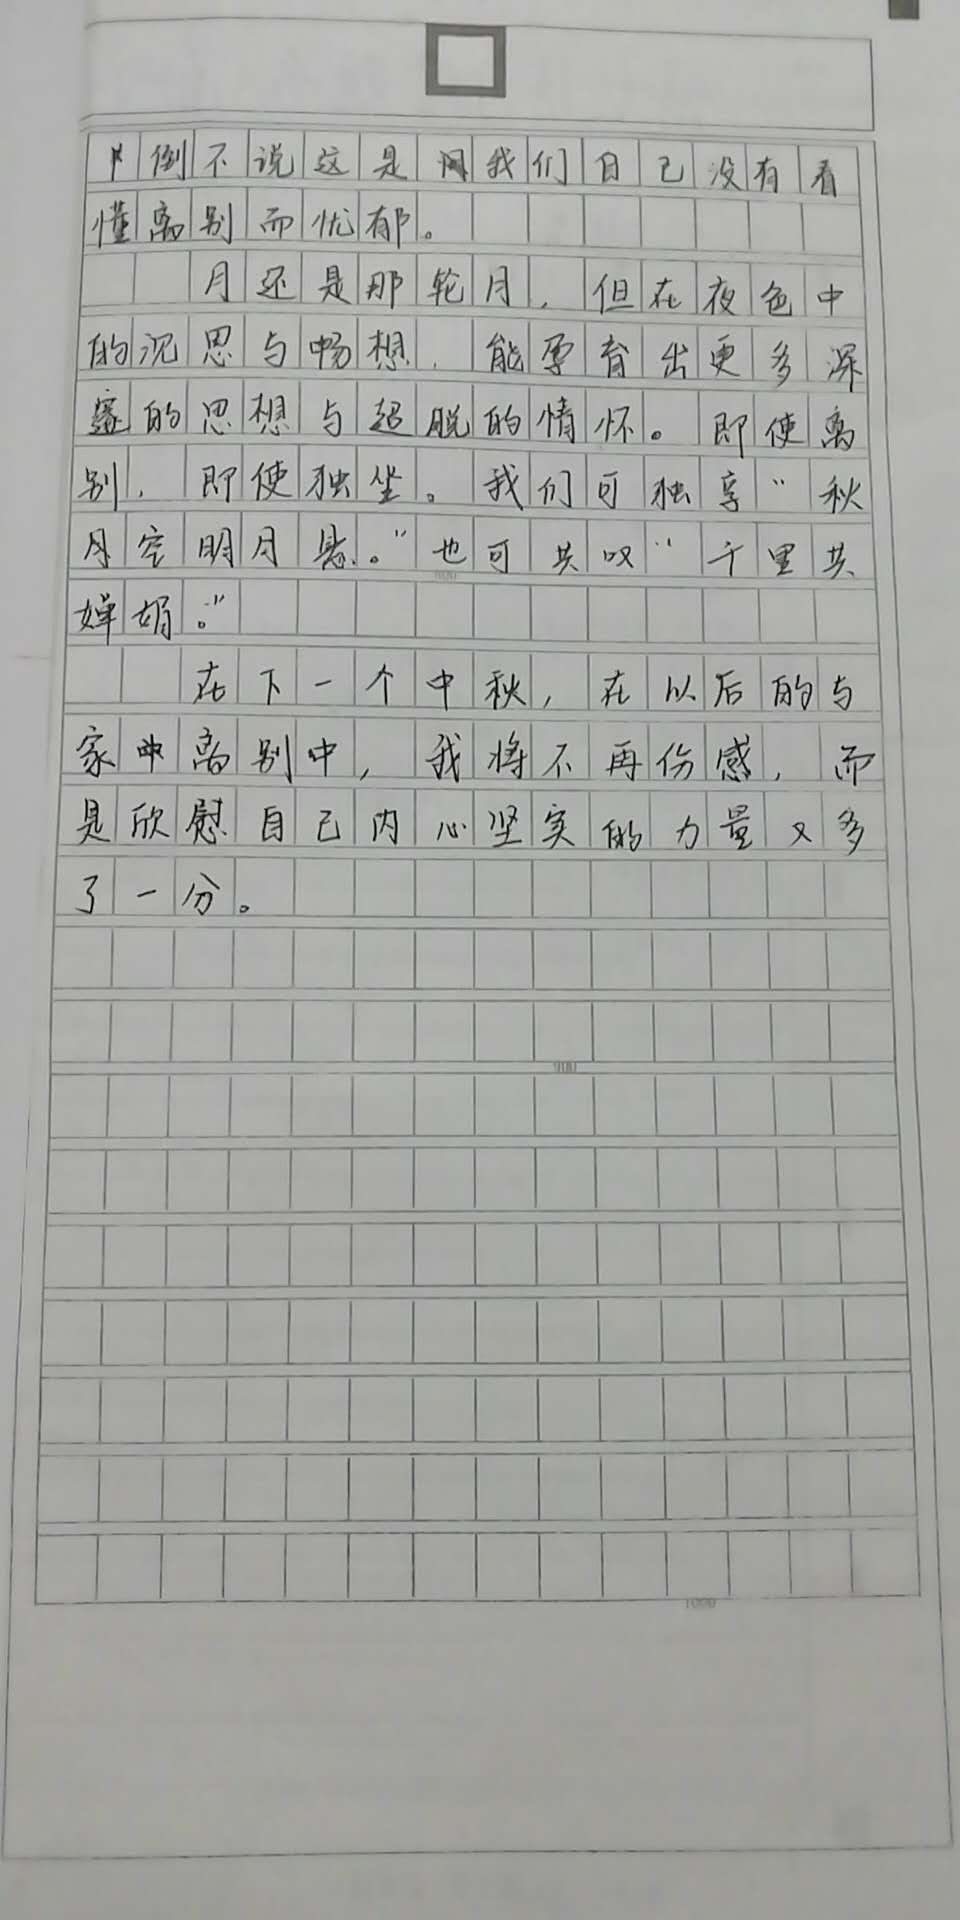 倒不说这是我们自己没有看
懂离别而忧郁。
月还是那轮月，但在夜色中
的沉思与畅想，能孕育出更多深
邃的思想与超脱的情怀。即使离
别，即使独坐。我们可独享“秋
月空明月悬。”也可共叹“千里共
婵娟。”
800
在下一个中秋，在以后的与
家中离别中，我将不再伤感，而
是欣慰自己内心坚实的力量又多
了一分。
900
1000